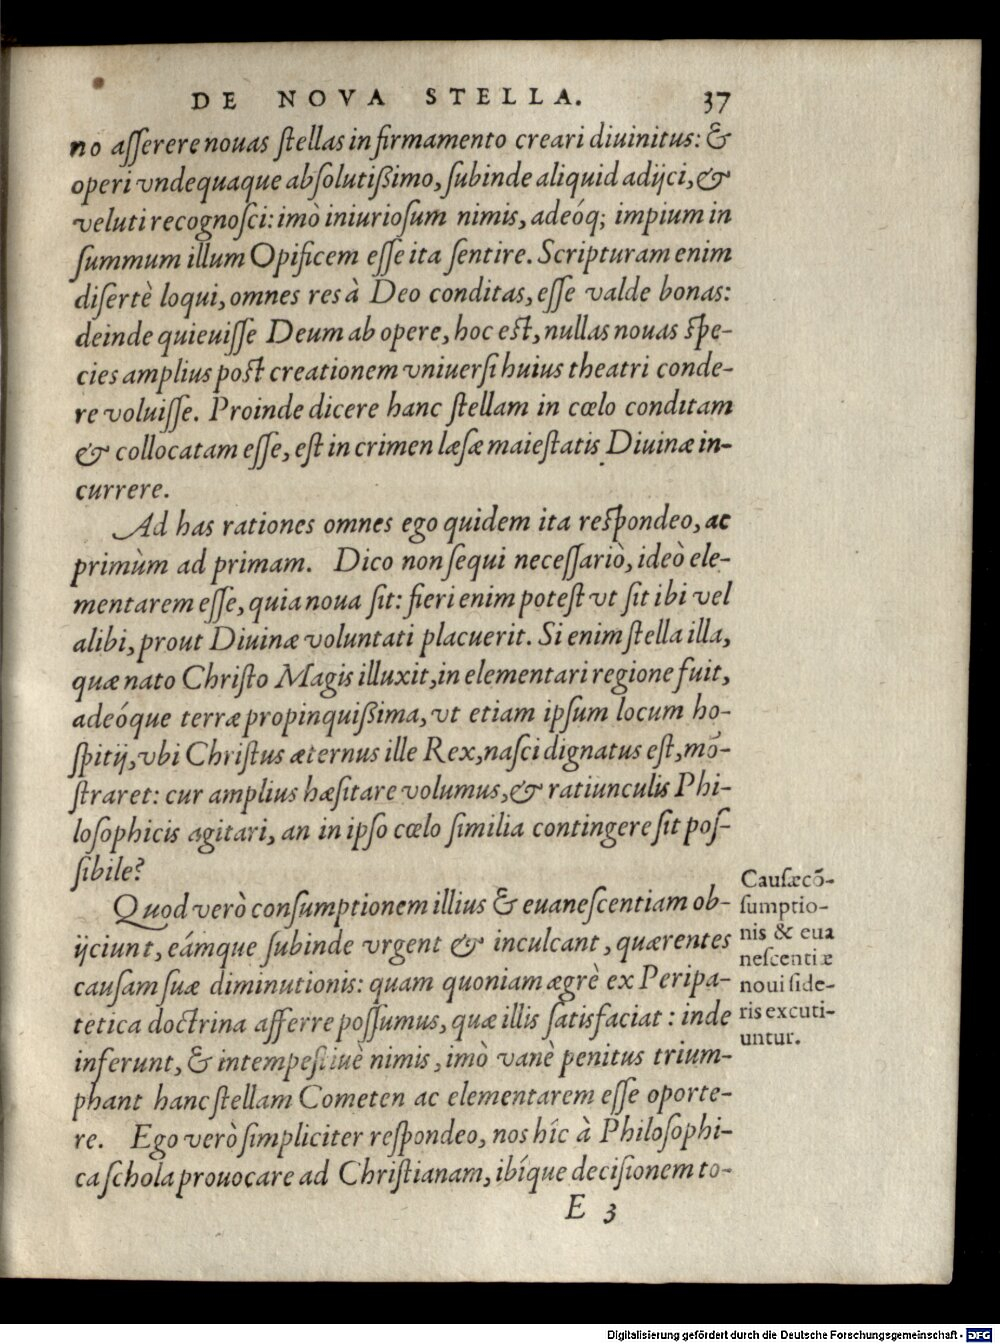 DE NOVA STELLA. 37
no aſſerere nouas ſtellas in firmamento creari diuinitus: &
operi vndequaque abſolutißimo, ſubinde aliquid adijci, &
veluti recognoſci: imò iniurioſum nimis, adeóq; impium in
ſummum illum Opificem eſſe ita ſentire. Scripturam enim
diſertè loqui, omnes res à Deo conditas, eſſe valde bonas:
deinde quieuiſſe Deum ab opere, hoc eſt, nullas nouas ſpe-
cies amplius poſt creationem vniuerſi huius theatri conde-
re voluiſſe. Proinde dicere hanc ſtellam in cœlo conditam
& collocatam eſſe, eſt in crimen læſæ maieſtatis Diuinæ in-
currere.
Ad has rationes omnes ego quidem ita reſpondeo, ac
primùm ad primam. Dico non ſequi neceſſariò, ideò ele-
mentarem eſſe, quia noua ſit: fieri enim poteſt vt ſit ibi vel
alibi, prout Diuinæ voluntati placuerit. Si enim ſtella illa,
quæ nato Chriſto Magis illuxit, in elementari regione fuit,
adeóque terræ propinquißima, vt etiam ipſum locum ho-
ſpitij, vbi Chriſtus æternus ille Rex, naſci dignatus eſt, mō-
ſtraret: cur amplius hæſitare volumus, & ratiunculis Phi-
loſophicis agitari, an in ipſo cœlo ſimilia contingere ſit poſ-
ſibile?
Quod verò conſumptionem illius & euaneſcentiam ob-
ijciunt, eámque ſubinde vrgent & inculcant, quærentes
cauſam ſuæ diminutionis: quam quoniam ægrè ex Peripa-
tetica doctrina afferre poſſumus, quæ illis ſatisfaciat: inde
inferunt, & intempeſtiuè nimis, imò vanè penitus trium-
phant hanc ſtellam Cometen ac elementarem eſſe oporte-
re. Ego verò ſimpliciter reſpondeo, nos hîc à Philoſophi-
ca ſchola prouocare ad Chriſtianam, ibíque deciſionem to-
E 3
Cauſæ cō-
ſumptio-
nis & eua
neſcentiæ
noui ſide-
ris excuti-
untur.
Digitalisierung gefördert durch die Deutsche Forschungsgemeinschaft - DFG